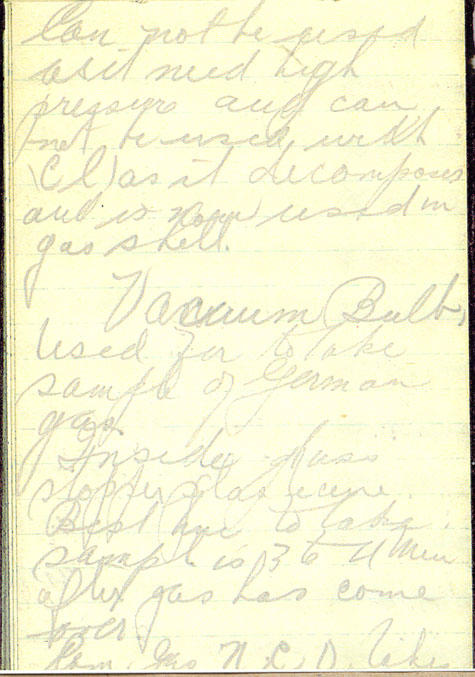 Can not be used
as it need high
pressure and can
not be used with
(Cl) as it decomposes
and is now used in
gas shell.
Vacuum Bulb,
Used for to take
sample of German
gas
Inside glass
stopper glas
Best time to take
sample is 3 to 4 Min
after gas has come
over.
N.C.O. takes